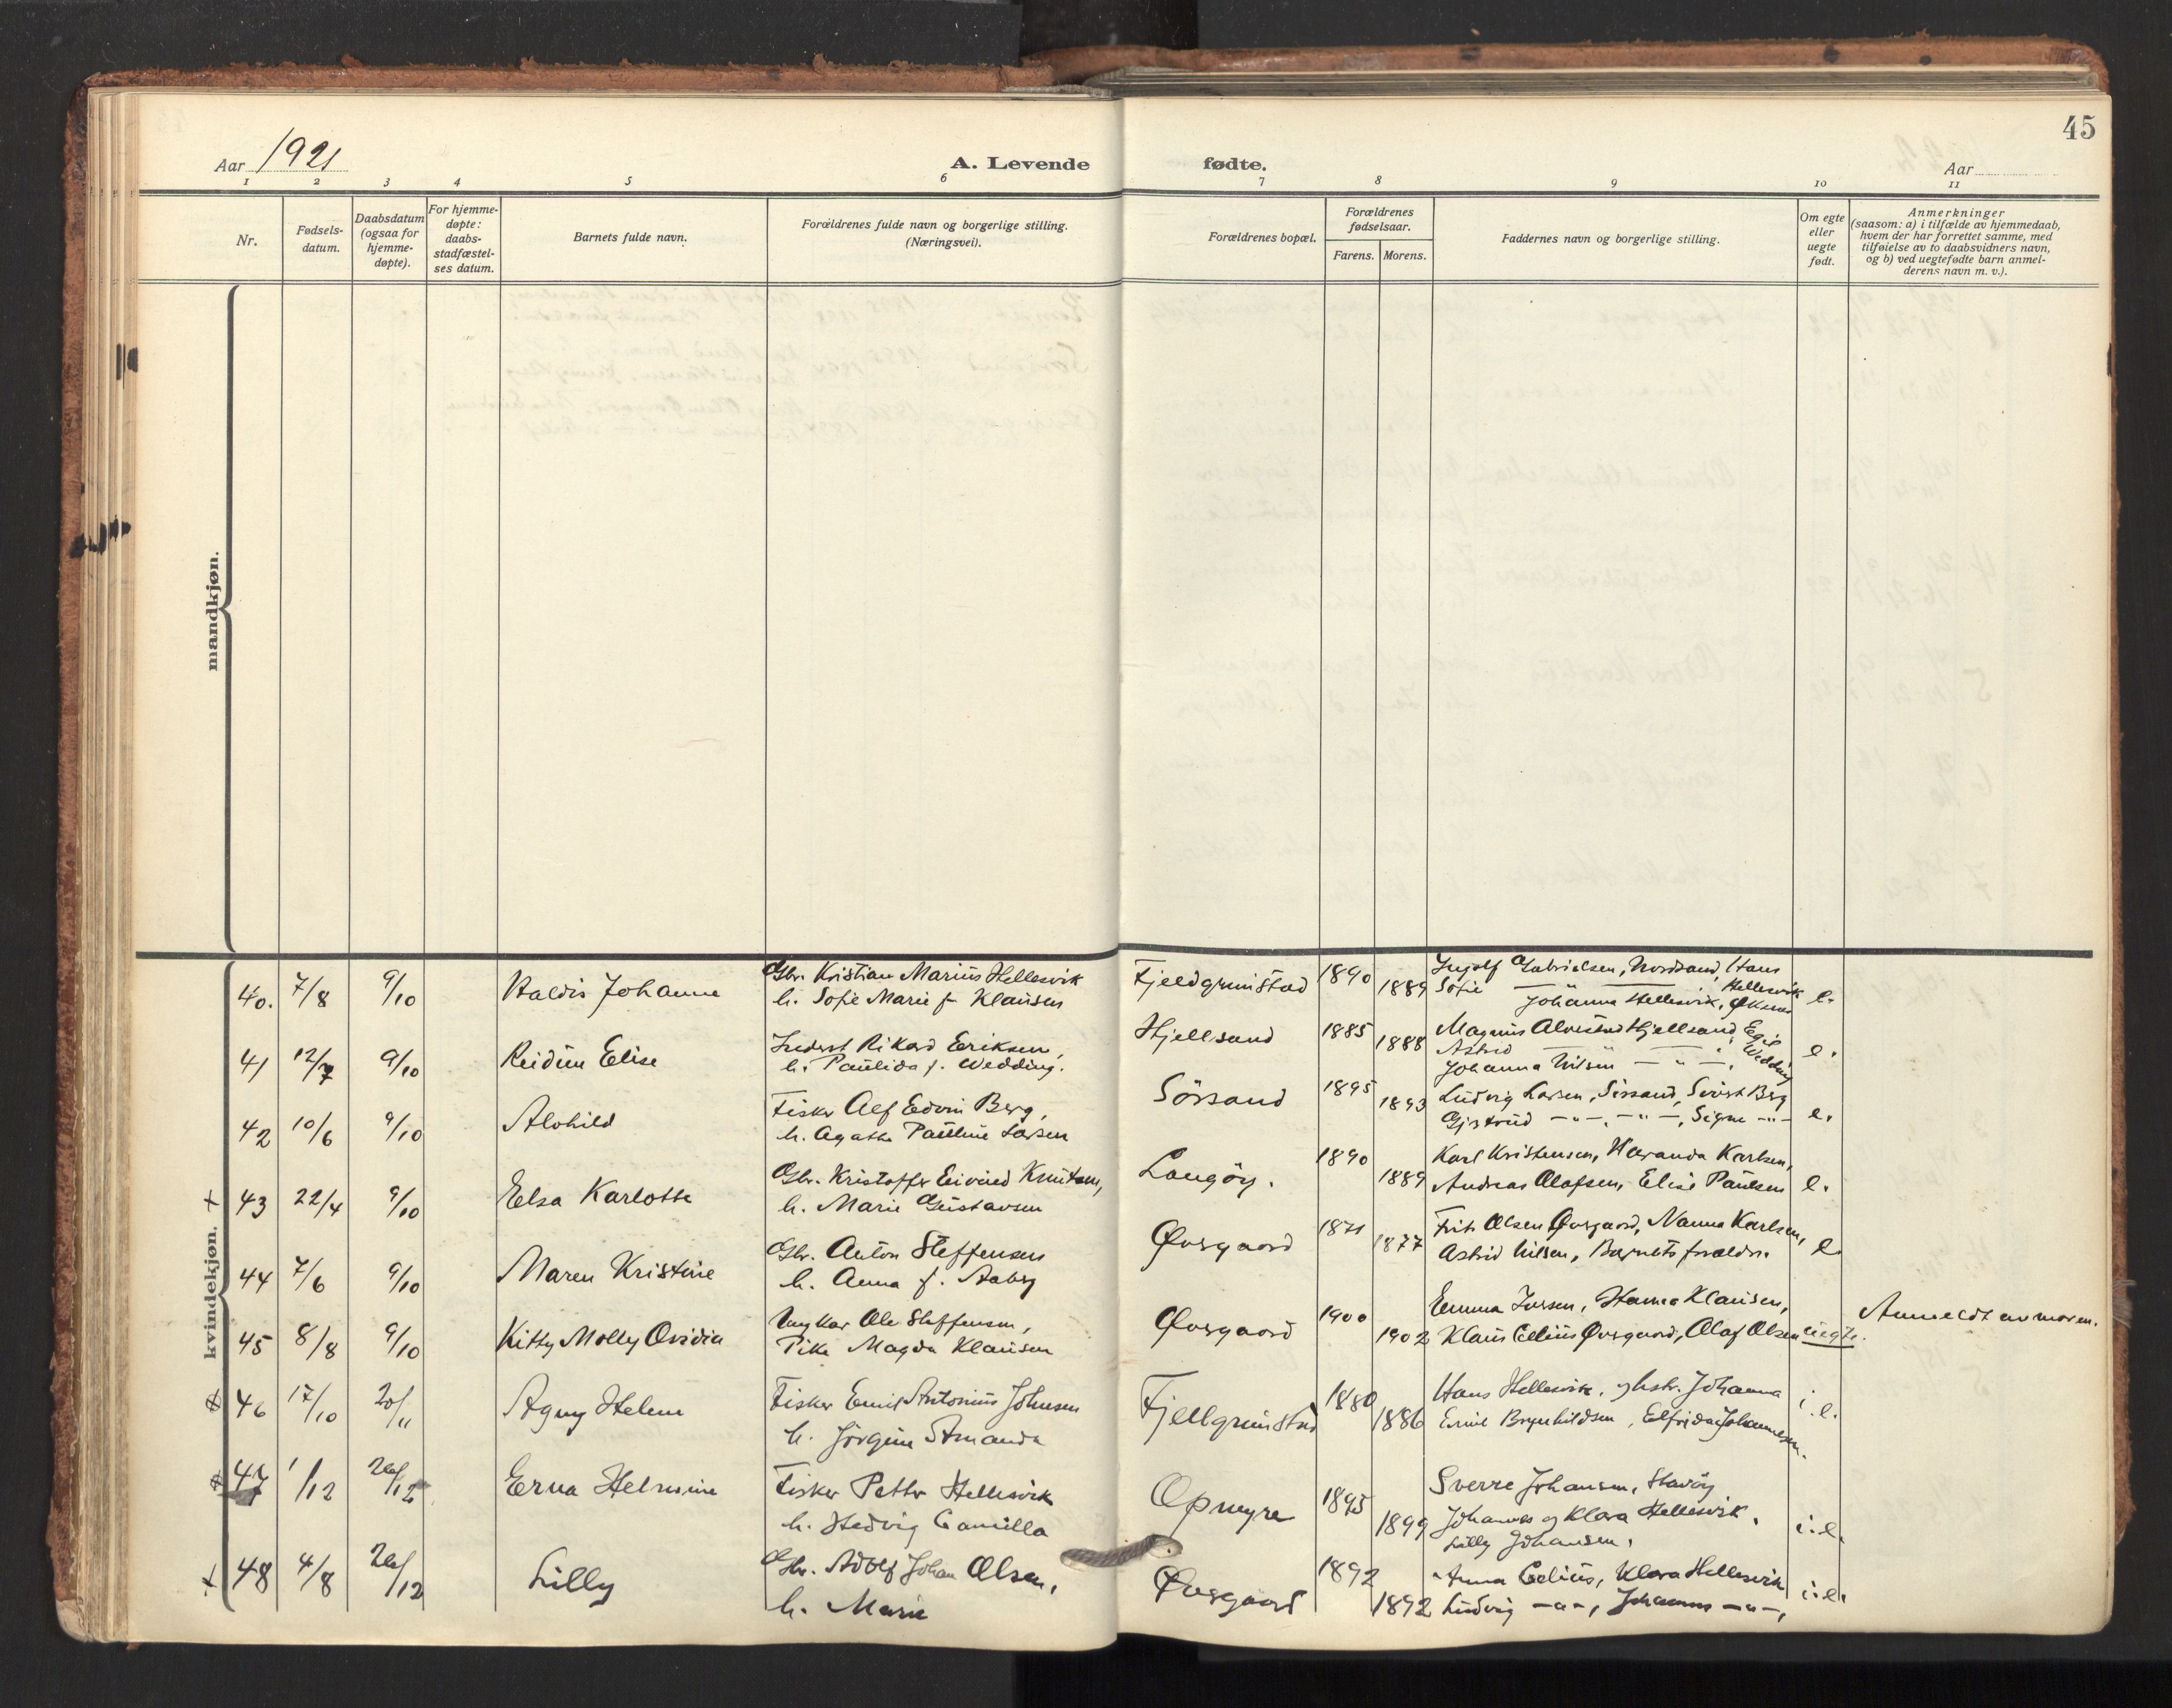 45
Aar 1921
A. Levende fødte.
Aar
1 2 3 4 5 6 7 8 9 10 11
Nr.
Fødsels-
datum.
Daabsdatum
(ogsaa for
hjemme-
døpte).
For hjemme-
døpte:
daabs-
stadfæstel-
ses datum.
Barnets fulde navn.
Forældrenes fulde navn og borgerlige stilling.
(Næringsvei).
Forældrenes bopæl.
Forældrenes
fødselsaar.
Farens. Morens.
Faddernes navn og borgerlige stilling.
Om egte
eller
uegte
født.
Anmerkninger
(saasom: a) i tilfælde av hjemmedaab,
hvem der har forrettet samme, med
tilføielse av to daabsvidners navn,
og b) ved uegtefødte barn anmel-
derens navn m. v.).
mandkjøn.
kvindekjøn.
40. 7/8 9/10 Valdis Johanne
Gbr. Kristian Marius Hellesvik
h. Sofie Marie f. Klausen
Fjeldgrimstad 1890 1889
Ingolf Gabrielsen, Nordsand, Hans Hellesvik
Sofie — Johanna Hellesvik,
e.
41 12/7 9/10 Reidun Elise
Inderst Rikard Eriksen,
h. Paulida f. Wedding.
Hjellsand 1885 1888
Magnus Alvestad Hjellsand,
Astrid — " Wedding
Johanna Nilsen — " —,
e.
42 10/6 9/10 Alvhild
Fisker Alf Edvin Berg,
h. Agathe Pauline Larsen
Sörsand 1895 1893
Ludvig Larsen, Sivert Berg
— " —, — " —, Signe — " —
e.
+ 43 22/4 9/10 Elsa Karlotte
Gbr. Kristoffer Eivind Knutsen,
h. Marie Gustavsen
Langöy. 1890 1889
Karl Kristensen, Karlsen,
Andreas Olafsen, Elise Paulsen
e.
44 7/6 9/10 Maren Kristine
Gbr. Anton Steffensen
h. Anna f. Aaberg
Øvergaard 1871 1877
Olsen Øvergaard, Nanna Karlsen,
Astrid Nilsen, Barnets forældre.
e.
45 8/8 9/10 Kitty Molly Ovidia
Ungkar Ole Steffensen,
Pike Magda Klausen
Øvergaard 1900 1902
Emma Jensen, Hanna Klausen,
Klaus Celius Øvergaard, Olaf Olsen
uegte.
Anmeldt av moren.
46 17/10 20/11 Agny Helene
Fisker Emil Antonius Johnsen
h. Jörgine Amanda
Fjellgrimstad 1880 1886
Hans Hellesvik, og hstr. Johanna
Emil Brynhildsen, Elfrida Johannesen.
i. e.
47 1/12 26/12 Erna Helmine
Fisker Petter Hellesvik
h. Hedvig Camilla
Opmyre 1895 1899
Sverre Johansen, Stavöy
Johannes og Klara Hellesvik.
Lilly Johansen.
i. e.
+ 48 4/8 26/12 Lilly
Gbr. Adolf Johan Olsen,
h. Marie
Øvergaard 1892 1892
Anna Celius, Klara Hellesvik
Ludvig — " —, Johannes — " —,
i. e.